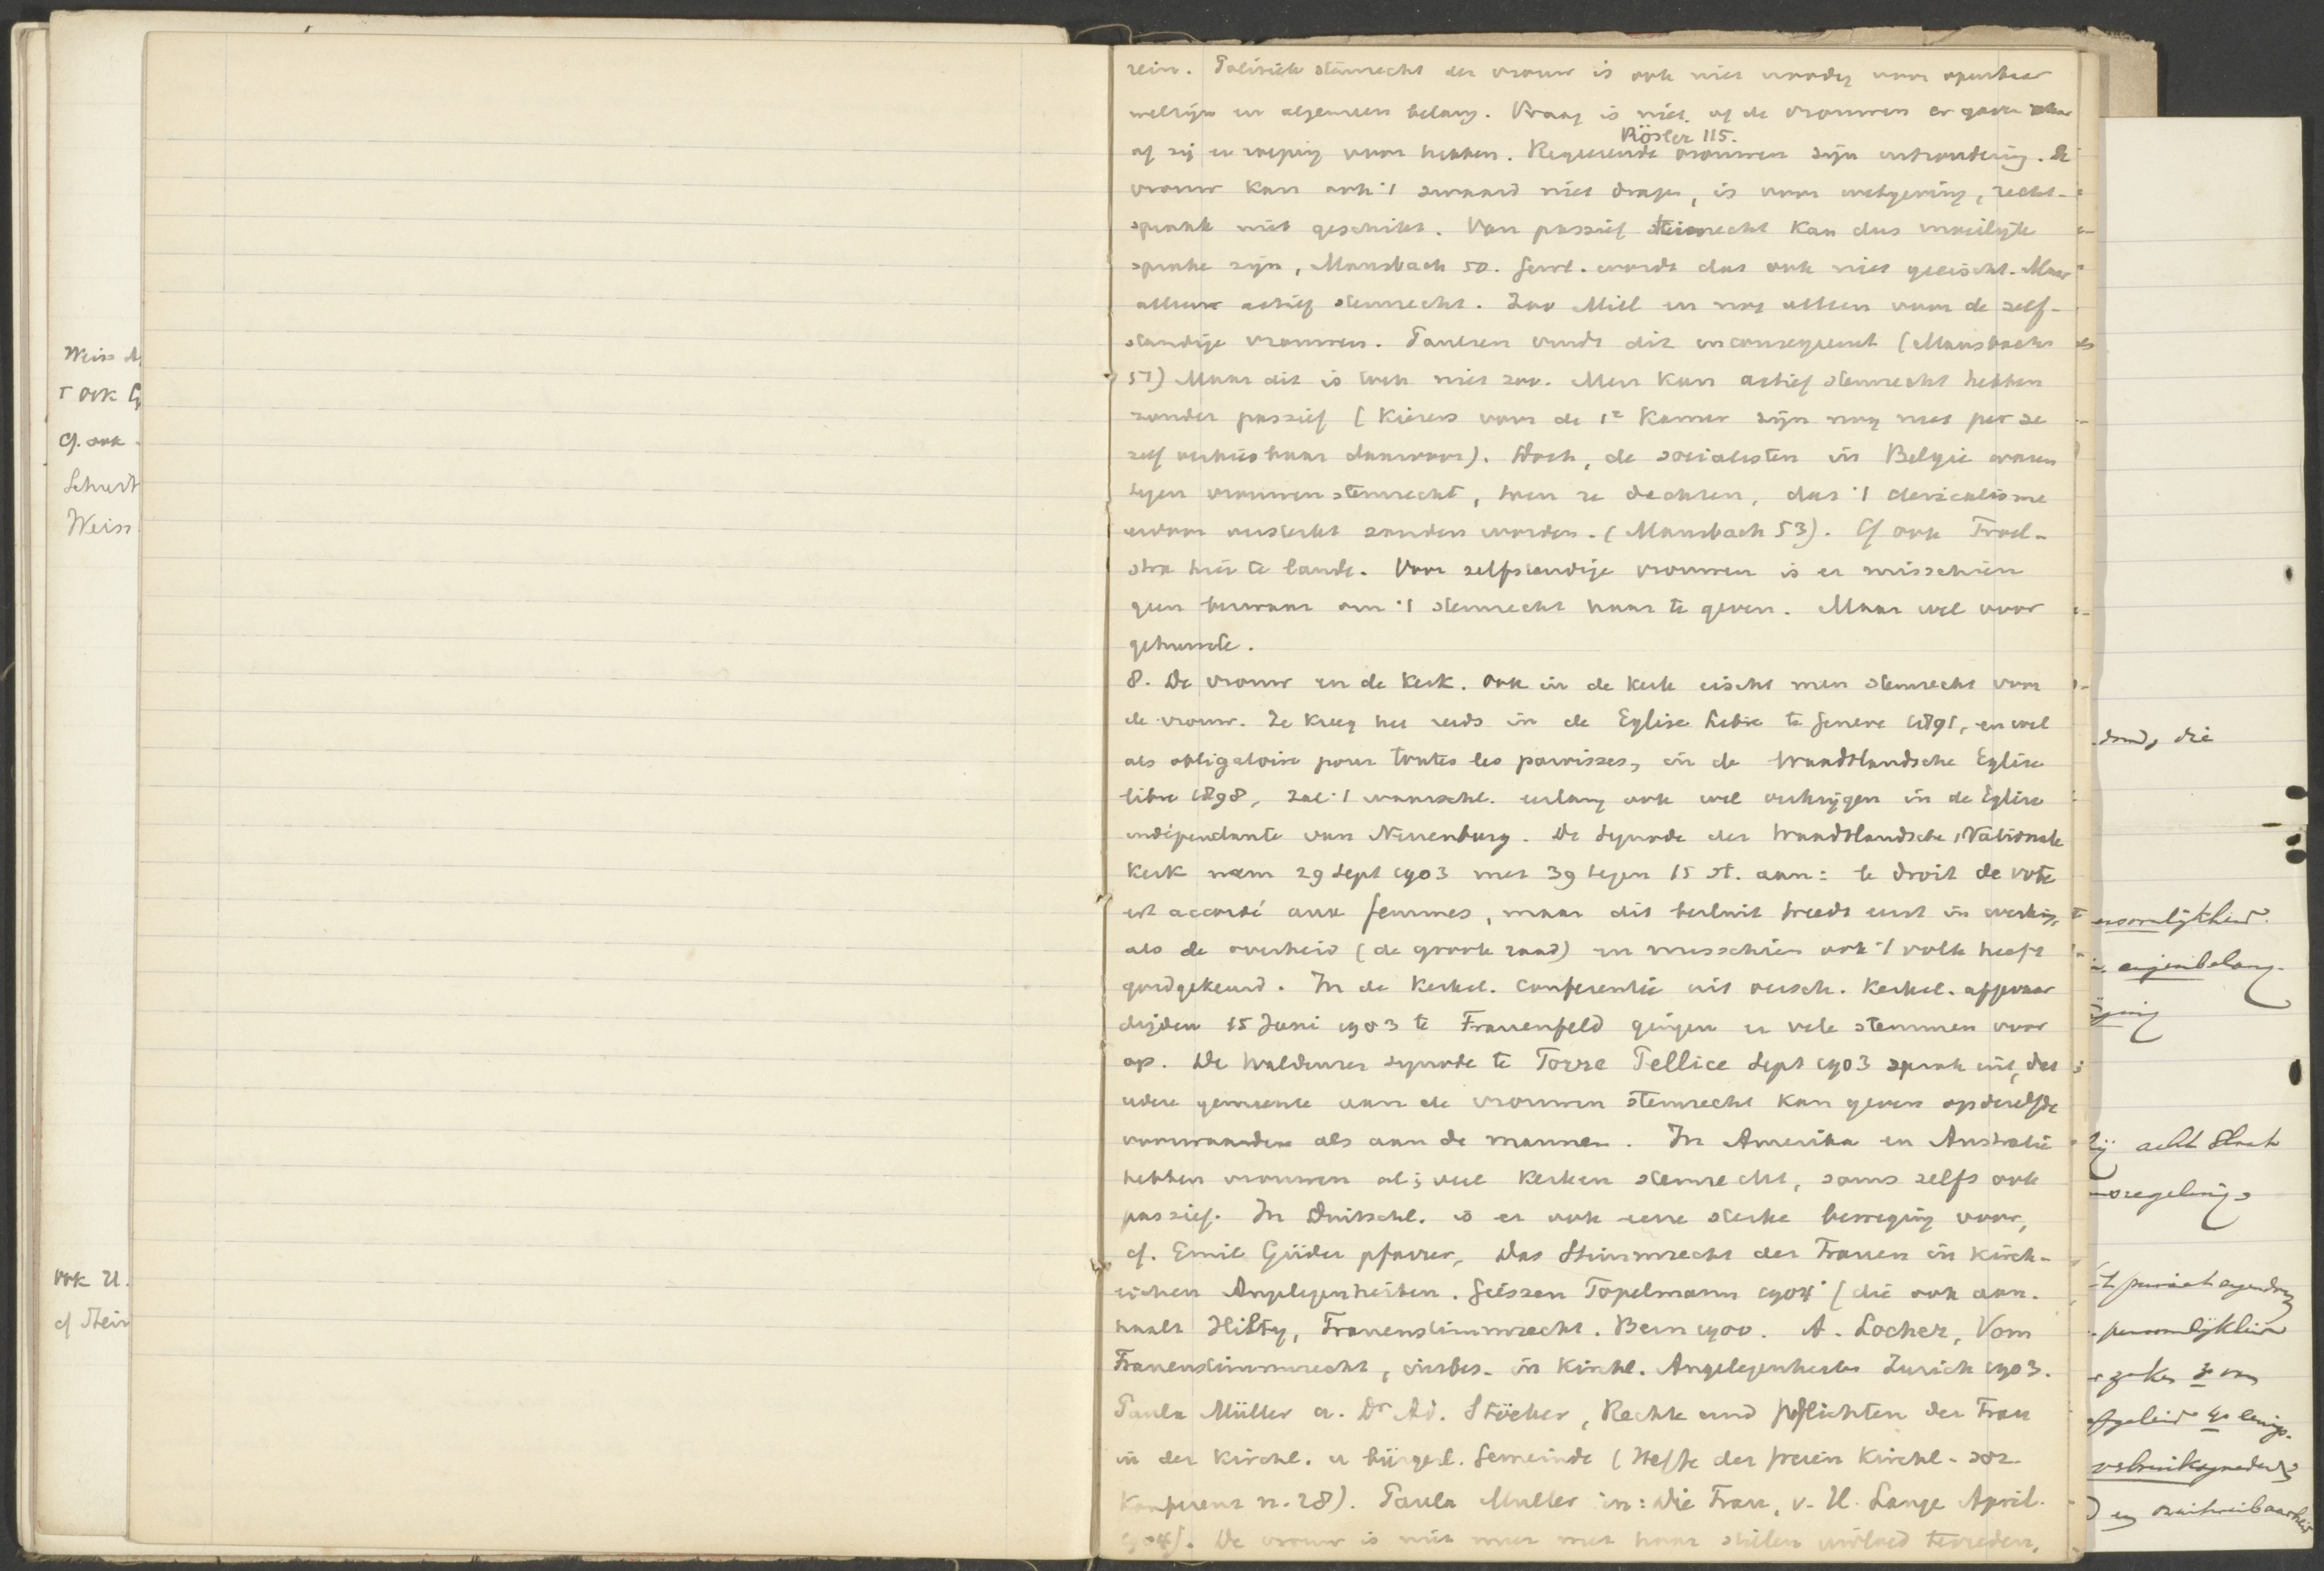 Weiss
ook
Cf. ook
Weiss
ook U.
cf Stein
rein. Politiek stemrecht der vrouw is ook niet noodig voor openbaar
welzijn en algemeen belang. Vraag is niet, of de vrouwen er gave voor
Rösler 115.
of zij er roeping voor hebben. Regeerende vrouwen zijn uitzondering. De
vrouw kan ook 't zwaard niet dragen, is voor wetgeving, recht-
spraak niet geschikt. Van passief stemrecht kan dus moeilijk
sprake zijn, Mausbach 50. Gew. wordt dat ook niet geeischt. Maar
alleen actief stemrecht. Zoo Mill en nog alleen voor de zelf-
standige vrouwen. Paulsen vindt dit inconsequent (Mausbach
51) Maar dit is toch niet zoo. Men kan actief stemrecht hebben
zonder passief (Kiezers voor de 1e Kamer zijn nog niet per se
zelf verkiesbaar daarvoor). Doch, de socialisten in België waren
tegen vrouwenstemrecht, wen ze dachten, dat 't clericalisme
erdoor versterkt zouden worden. (Mausbach 53). Cf ook Troel-
stra hier te lande. Voor zelfstandige vrouwen is er misschien
geen bezwaar om 't stemrecht haar te geven. Maar wel voor
gehuwde.
8. De vrouw in de Kerk. Ook in de Kerk eischt men stemrecht voor
de vrouw. Ze kreeg het reeds in de Eglise libre te Geneve 1891, en wel
als obligatoire pour toutes les paroisses, in de Waadtlandsche Eglise
libre 1898, zal 't waarschl. eerlang ook wel verkrijgen in de Eglise
indépendante van Neuenburg. De Synode der Waadtlandsche Nationale
Kerk nam 29 Sept 1903 met 39 tegen 15 st. aan: le droit de vote
est accordé aux femmes, maar dit besluit treedt eerst in werking,
als de overheid (de groote raad) en misschien ook 't volk heeft
goedgekeurd. In de Kerkel. Conferentie uit versch. Kerkel. afgevaar
digden 15 Juni 1903 te Frauenfeld gingen er vele stemmen voor
op. De Waldenser synode te Torre Pellice Sept 1903 sprak uit, dat
iedere gemeente aan de vrouwen stemrecht kan geven op dezelfde
voorwaarden als aan de mannen. In Amerika en Australië
hebben vrouwen al in veel Kerken stemrecht, soms zelfs ook
passief. In Duitschl. is er ook eene sterke beweging voor,
cf. Emil Güder pfarrer, Das Stimmrecht der Frauen in Kirch-
lichen Angelegenheiten. Giessen Töpelmann 1904 (die ook aan-
haalt Hilty, Frauenstimmrecht. Bern 1900. A. Locher, Vom
Frauenstimmrecht, insbes. in Kirchl. Angelegenheiten Zurich 1903.
Paula Müller u. Dr Ad. Stöcker, Rechte und Pflichten der Frau
in der Kirchl. u bürgerl. Gemeinde (Hefte der freien Kirchl.-soz.
Konferenz n. 28). Paula Muller in: Die Frau, v. H. Lange April
1904). De vrouw is niet meer met haar stillen invloed tevreden,
die
eigenbelang.
acht Staat
regeling